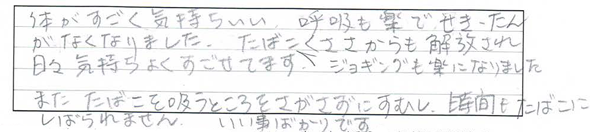 体がすごく気持ちいい。呼吸も楽でせき・たん
がなくなりました。たばこくささからも解放され
日々気持ちよくすごせてます。ジョギングも楽になりました
また たばこを吸うところをさがさずにすむし、時間もたばこに
しばられません。いい事ばかりです